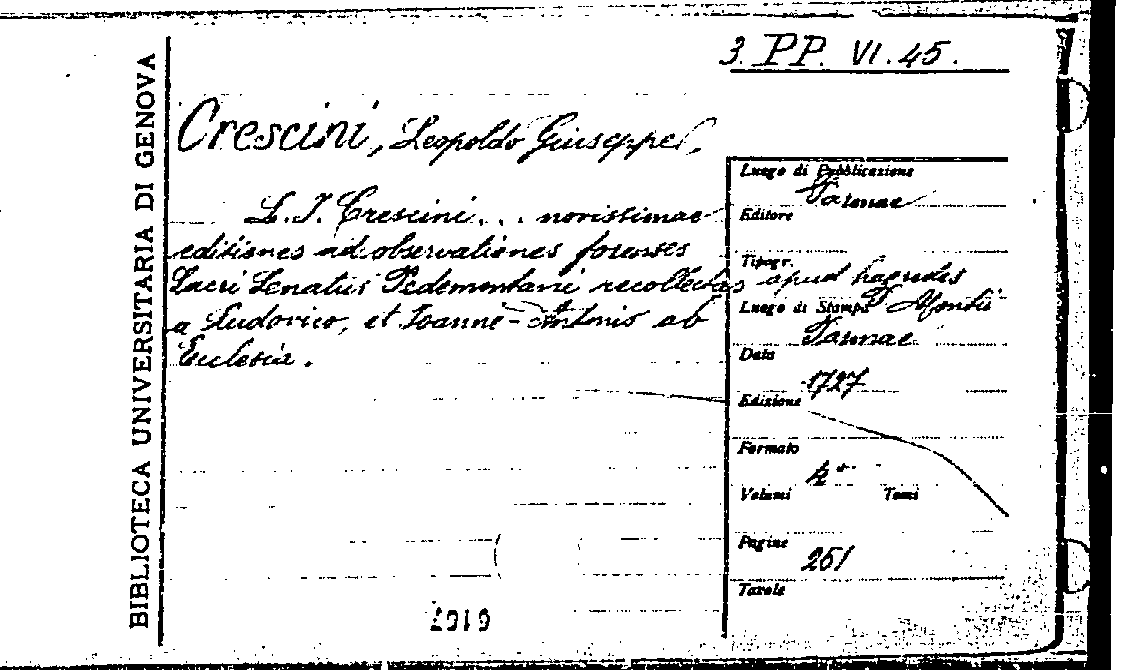 3. PP. VI. 45.
BIBLIOTECA UNIVERSITARIA DI GENOVA
Crescini, Leopoldo Giuseppe,
L. I. Crescini... novissimae
editiones ad observationes forenses
Sacri Senatus Pedemontani recollectas
a Ludovico, et Ioanne-Antonio ab
Ecclesia.
Luogo di Pubblicazione
Editore
Tipogr. apud haeredes
Luogo di Stampa
Data 1727
Edizione
Formato 4°
Volumi Tomi
Pagine 251
Tavole